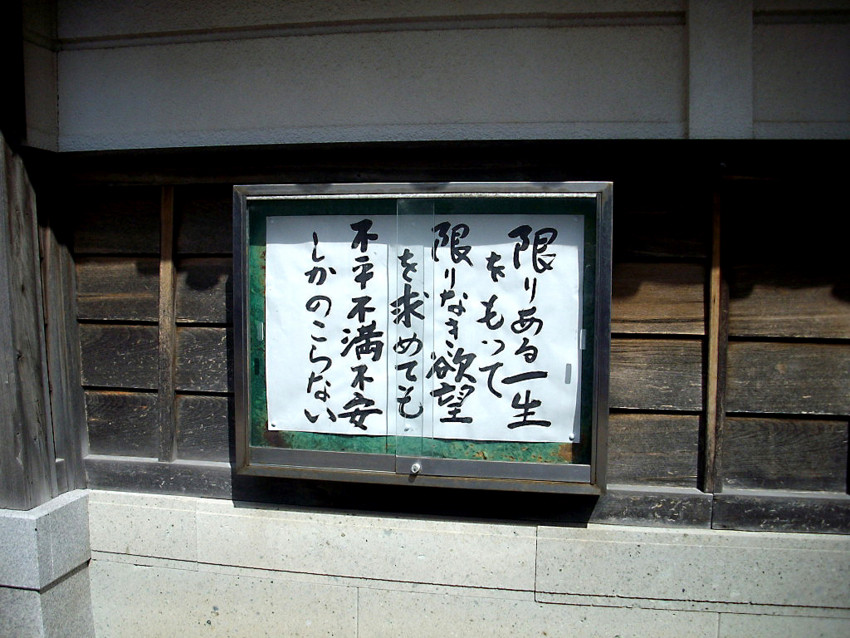 限りある一生
をもって
限りなき欲望
を求めても
不平不満不安
しかのこらない